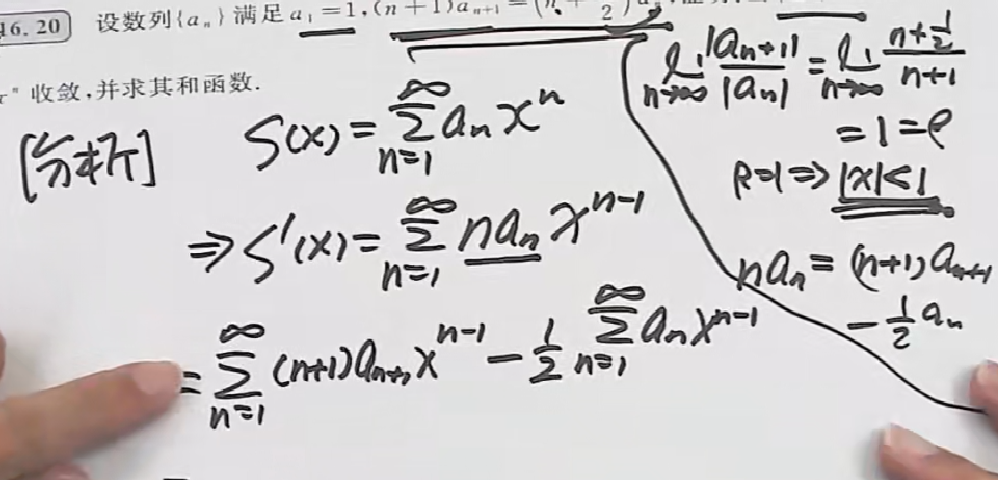 16.20 设数列{aₙ}满足a₁=1,(n+1)aₙ₊₁=(n+1/2)a
xⁿ收敛,并求其和函数.
[分析] S(x)=∑_{n=1}^{∞} aₙxⁿ
⇒S'(x)=∑_{n=1}^{∞} naₙxⁿ⁻¹
=∑_{n=1}^{∞} (n+1)aₙ₊₁xⁿ⁻¹-1/2∑_{n=1}^{∞} aₙxⁿ⁻¹
lim_{n→∞} |aₙ₊₁|/|aₙ|=lim_{n→∞} (n+1/2)/(n+1)
=1=ρ
R=1⇒|x|<1
naₙ=(n+1)aₙ₊₁
-1/2aₙ